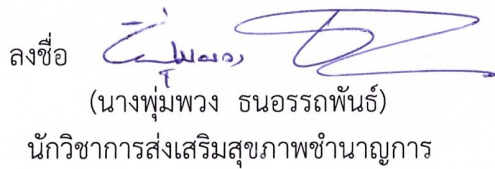 ลงชื่อ
(นางพุ่มพวง ธนอรรถพันธ์)
นักวิชาการส่งเสริมสุขภาพชำนาญการ